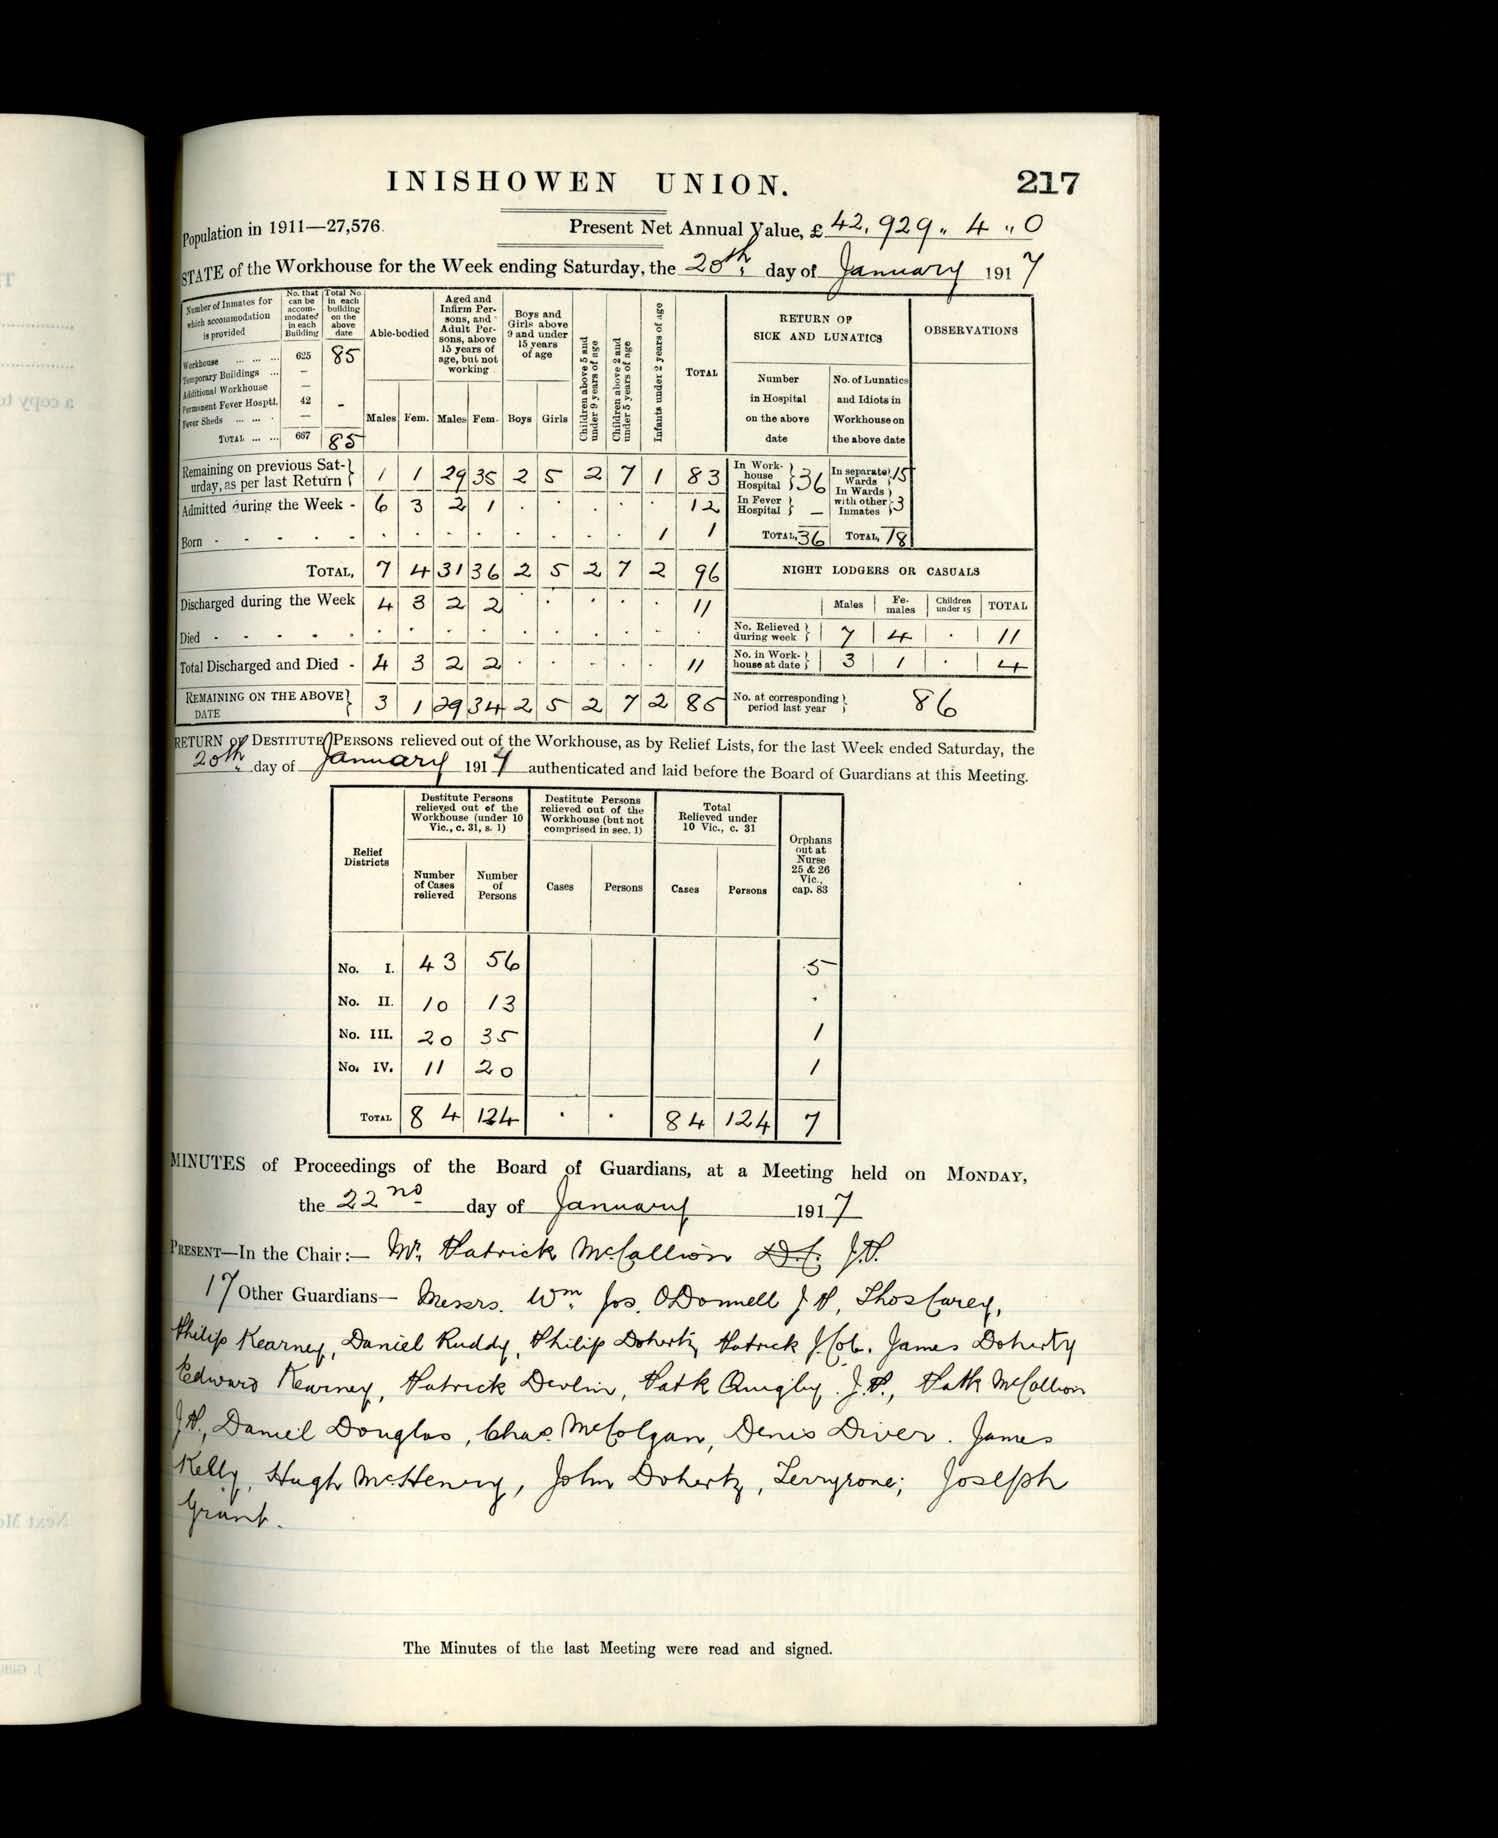 INISHOWEN UNION.
217
Population in 1911—27,576.
Present Net Annual Value, £ 42,929 „ 4 „ 0
STATE of the Workhouse for the Week ending Saturday, the 20th, day of January 1917
Number of Inmates for which accommodation is provided
No. that can be accommodated in each Building
Total No. in each building on the above date
Able-bodied
Aged and Infirm Persons, and Adult Persons, above 15 years of age, but not working
Boys and Girls above 9 and under 15 years of age
Children above 5 and under 9 years of age
Children above 2 and under 5 years of age
Infants under 2 years of age
TOTAL
Males Fem. Males Fem. Boys Girls
Workhouse ... ... ... 625 85
Temporary Buildings ... —
Additional Workhouse —
Permanent Fever Hosptl. 42 -
Fever Sheds ... ... . —
TOTAL ... ... 667 85
Remaining on previous Saturday, as per last Return 1 1 29 35 2 5 2 7 1 83
Admitted during the Week - 6 3 2 1 . . . . . 12
Born - - - - - . . . . . . . . 1 1
TOTAL, 7 4 31 36 2 5 2 7 2 96
Discharged during the Week 4 3 2 2 . . . . . 11
Died - - - - - . . . . . . . . . .
Total Discharged and Died - 4 3 2 2 . . . . . 11
REMAINING ON THE ABOVE DATE 3 1 29 34 2 5 2 7 2 85
RETURN OF
SICK AND LUNATICS
OBSERVATIONS
Number in Hospital on the above date
No. of Lunatics and Idiots in Workhouse on the above date
In Workhouse Hospital 36
In separate Wards 15
In Fever Hospital —
In Wards with other Inmates 3
TOTAL, 36 TOTAL, 18
NIGHT LODGERS OR CASUALS
Males Females Children under 15 TOTAL
No. Relieved during week 7 4 . 11
No. in Workhouse at date 3 1 . 4
No. at corresponding period last year 86
RETURN OF DESTITUTE PERSONS relieved out of the Workhouse, as by Relief Lists, for the last Week ended Saturday, the
20th. day of January 1917 authenticated and laid before the Board of Guardians at this Meeting.
Relief Districts
Destitute Persons relieved out of the Workhouse (under 10 Vic., c. 31, s. 1)
Destitute Persons relieved out of the Workhouse (but not comprised in sec. 1)
Total Relieved under 10 Vic., c. 31
Orphans out at Nurse 25 & 26 Vic., cap. 83
Number of Cases relieved
Number of Persons
Cases Persons Cases Persons
No. I. 43 56 5
No. II. 10 13 .
No. III. 20 35 1
No. IV. 11 20 1
TOTAL 84 124 . . 84 124 7
MINUTES of Proceedings of the Board of Guardians, at a Meeting held on MONDAY,
the 22nd day of January 1917
PRESENT—In the Chair:— Mr. Patrick McCallion D.C. J.P.
17 Other Guardians— Messrs. Wm. Jos. ODonnell J P, Thos Carey,
Philip Kearney, Daniel Ruddy, Philip Doherty, Patrick J. James Doherty
Edward Kearney, Patrick Devlin, Patk Quigley. J.P., Patk McCallion
J.P., Daniel Douglas, Chas. McColgan, Denis Diver. James
Kelly, Hugh McHenry, John Doherty, Joseph
Grant.
The Minutes of the last Meeting were read and signed.